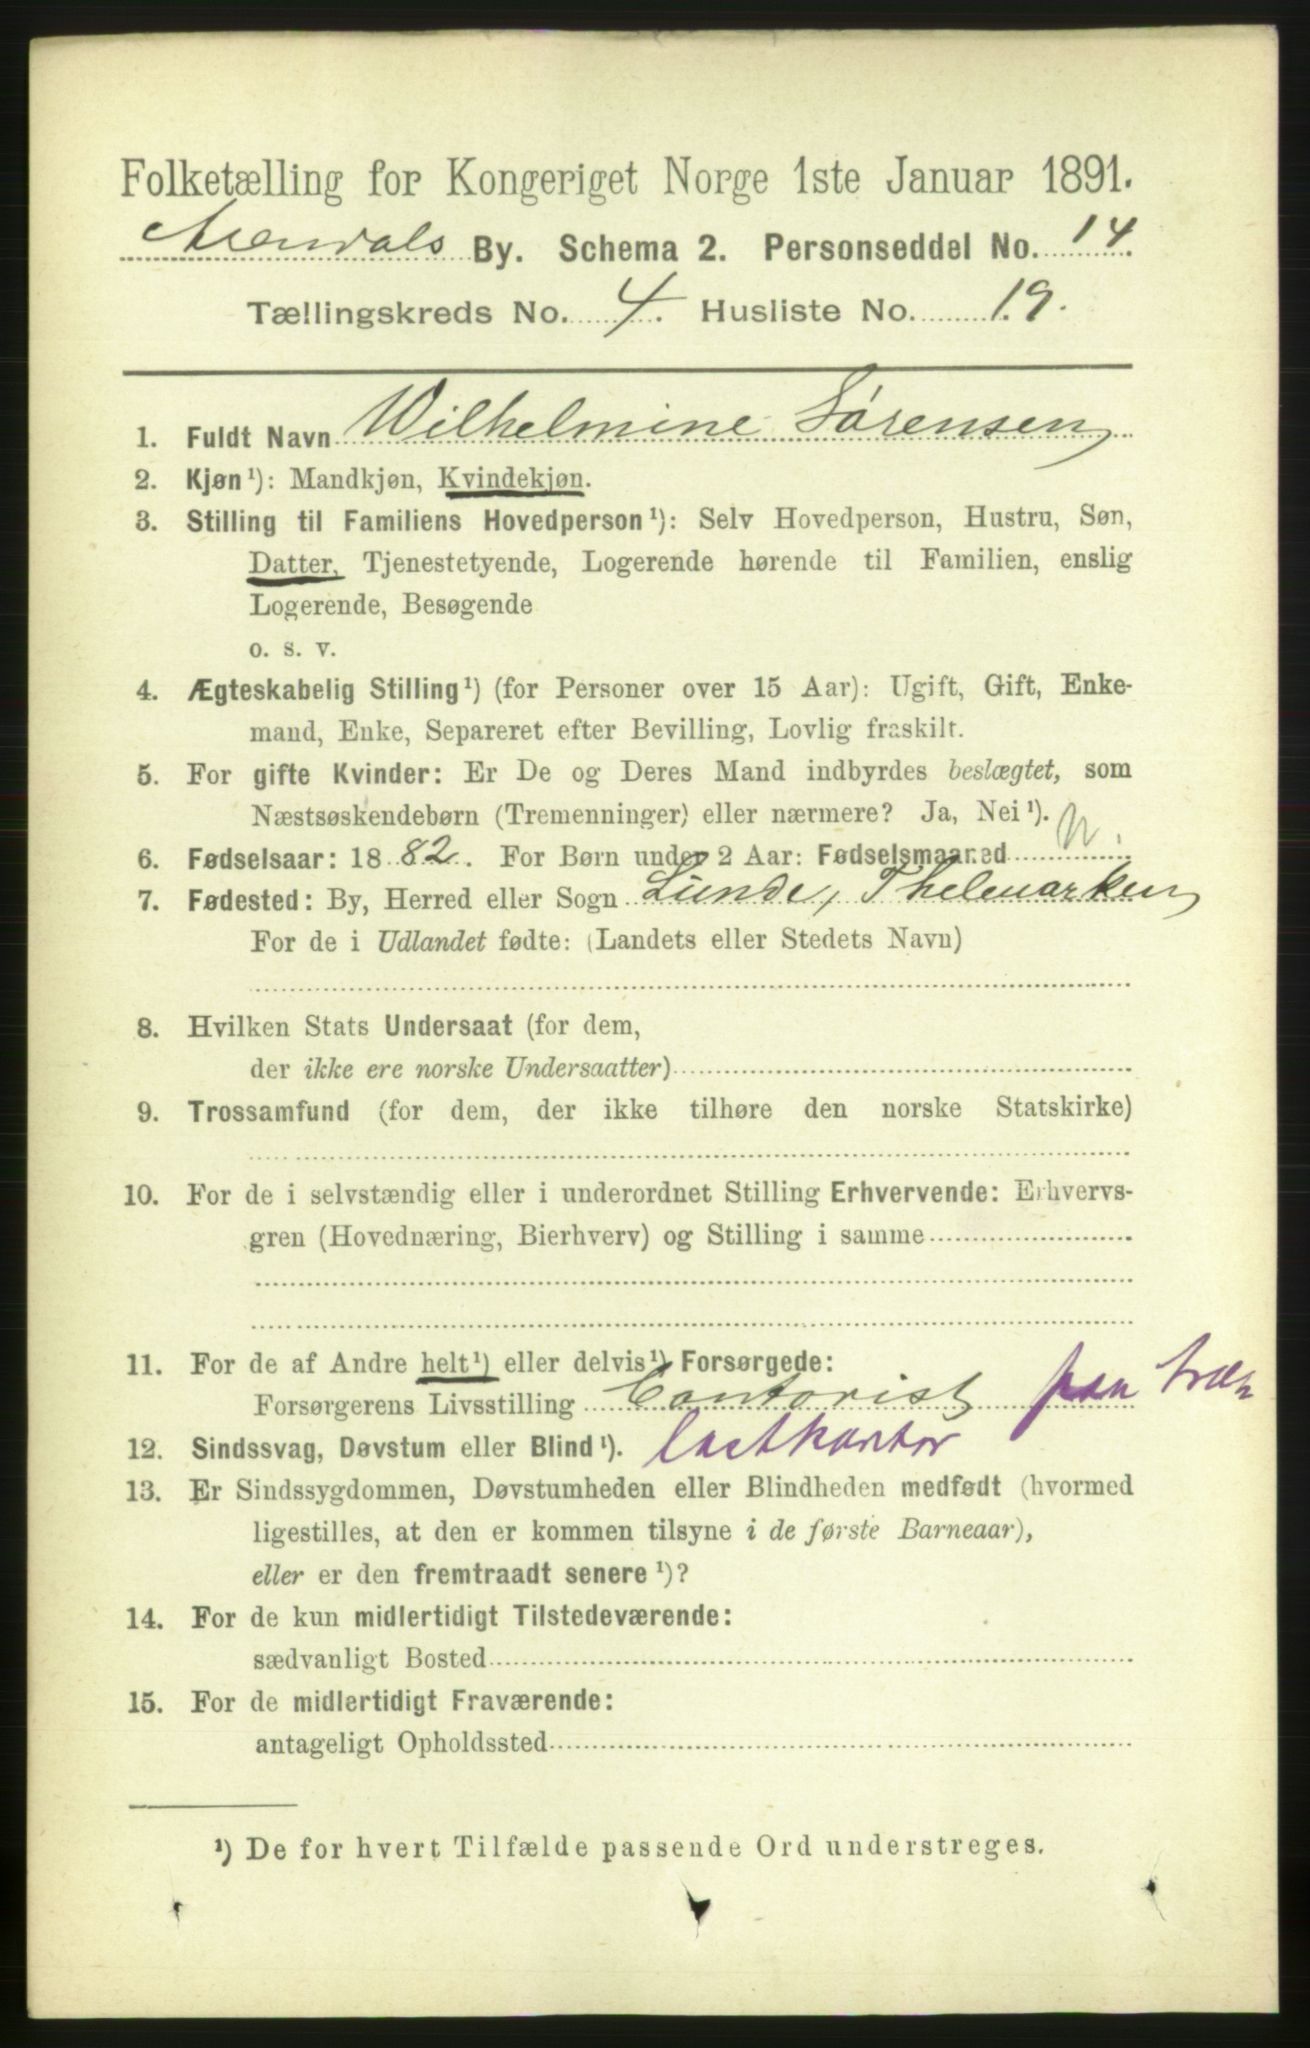 Folketælling for Kongeriget Norge 1ste Januar 1891.
Arendals By. Schema 2. Personseddel No. 14.
Tællingskreds No. 4. Husliste No. 19.
1. Fuldt Navn Wilhelmine Sørensen
2. Kjøn¹): Mandkjøn, Kvindekjøn.
3. Stilling til Familiens Hovedperson¹): Selv Hovedperson, Hustru, Søn,
Datter, Tjenestetyende, Logerende hørende til Familien, enslig
Logerende, Besøgende
o. s. v.
4. Ægteskabelig Stilling¹) (for Personer over 15 Aar): Ugift, Gift, Enke-
mand, Enke, Separeret efter Bevilling, Lovlig fraskilt.
5. For gifte Kvinder: Er De og Deres Mand indbyrdes beslægtet, som
Næstsøskendebørn (Tremenninger) eller nærmere? Ja, Nei¹).
6. Fødselsaar: 1882. For Børn under 2 Aar: Fødselsmaaned
7. Fødested: By, Herred eller Sogn Lunde, Thelemarken
For de i Udlandet fødte: (Landets eller Stedets Navn)
8. Hvilken Stats Undersaat (for dem,
der ikke ere norske Undersaatter)
9. Trossamfund (for dem, der ikke tilhøre den norske Statskirke)
10. For de i selvstændig eller i underordnet Stilling Erhvervende: Erhvervs-
gren (Hovednæring, Bierhverv) og Stilling i samme
11. For de af Andre helt¹) eller delvis¹) Forsørgede:
Forsørgerens Livsstilling Contorist paa træ
12. Sindssvag, Døvstum eller Blind¹). lastkontor
13. Er Sindssygdommen, Døvstumheden eller Blindheden medfødt (hvormed
ligestilles, at den er kommen tilsyne i de første Barneaar),
eller er den fremtraadt senere¹)?
14. For de kun midlertidigt Tilstedeværende:
sædvanligt Bosted
15. For de midlertidigt Fraværende:
antageligt Opholdssted
¹) De for hvert Tilfælde passende Ord understreges.